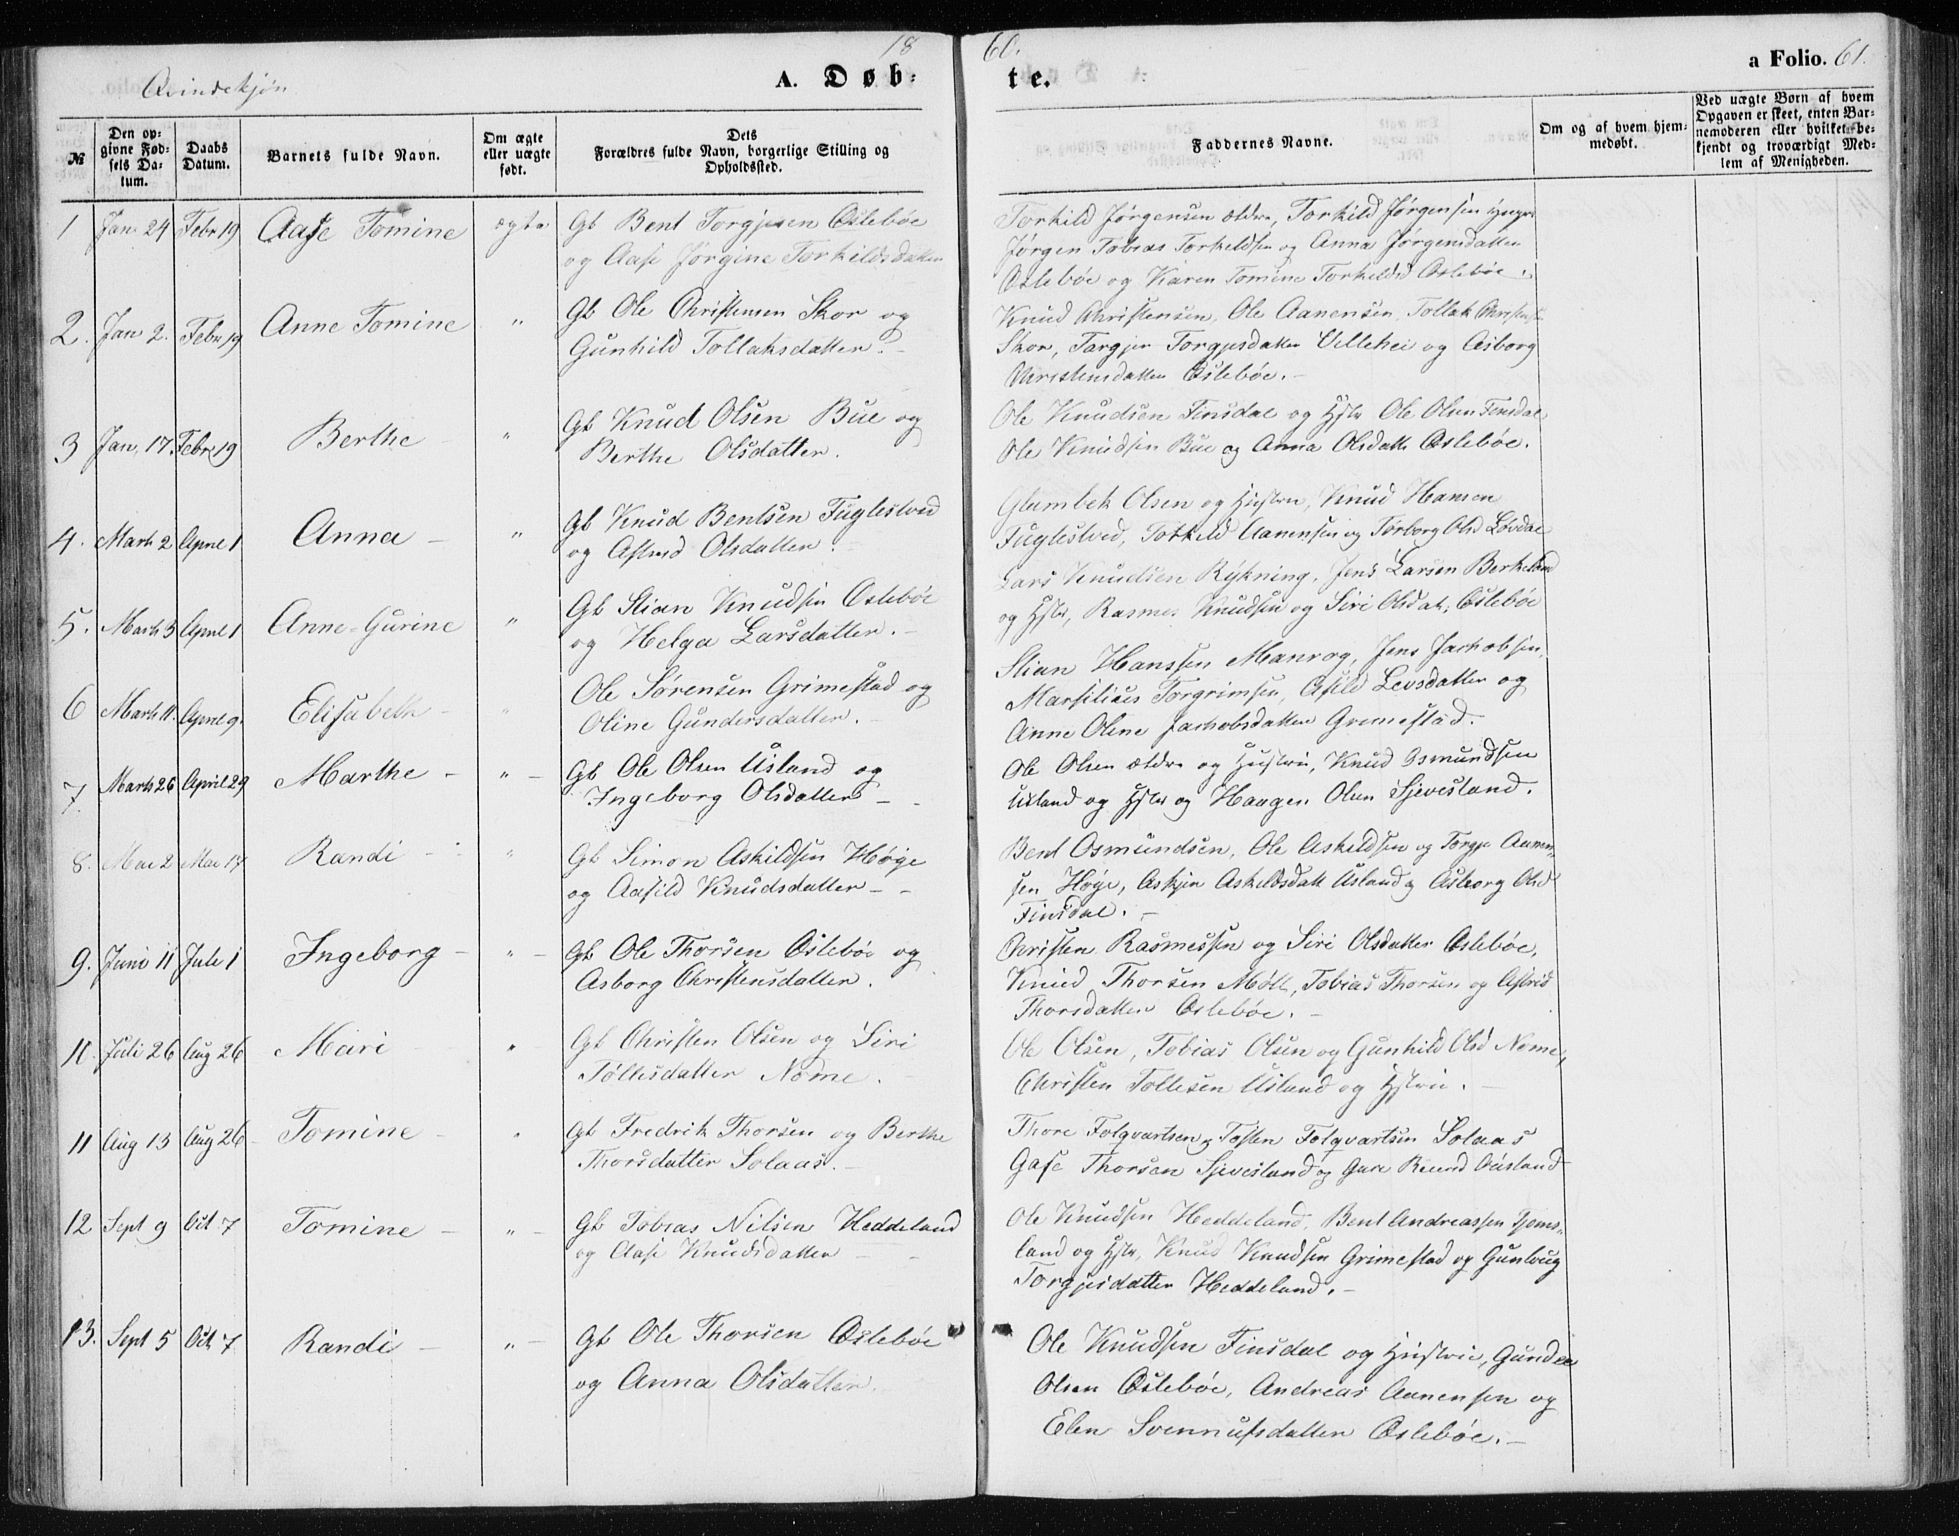 18 60.
Qvindekjøn A. Døb- te. a Folio. 61.
№
Den op-
givne Fød-
sels Da-
tum.
Daabs
Datum.
Barnets fulde Navn.
Om ægte
eller uægte
født.
Dets
Forældres fulde Navn, borgerlige Stilling og
Opholdssted.
Faddernes Navne.
Om og af hvem hjem-
medøbt.
Ved uægte Børn af hvem
Opgaven er skeet, enten Bar-
nemoderen eller hvilket be-
kjendt og troværdigt Med-
lem af Menigheden.
1 Jan. 24 Febr 19 Aase Tomine ægte Gb Bent Torgjesen Oslebøe
og Aase Jørgine Torkildsdatter
Torkild Jørgensen ældre, Torkild Jørgensen yngre
Jørgen Tobias Torkeldsen og Anna Jørgensdatter
Oslebøe og Karen Tomine Torkeldsd Oslebøe.
2. Jan 2. Febr 19 Anne Tomine " Gb Ole Christensen Skor og
Gunhild Tollaksdatter.
Knud Christensen, Ole Aanensen, Tollak Christensen
Skor, Targjer Torgjusdatter Ullehei og Asborg
Christensdatter Oslebøe.
3 Jan. 17. Febr 19 Berthe " Gb Knud Olsen Bue og
Berthe Olsdatter.
Ole Knudsen Finsdal og Hstr Ole Olsen Finsdal
Ole Knudsen Bue og Anna Olsdatt Oslebøe.
4. Marts 2 April 1 Anna - " Gb Knud Bentsen Fuglestved
og Astred Olsdatter.
Glumbek Olsen og Hustru, Knud Hansen
Fuglestved, Torkild Aanensen og Torborg Olsd Løvdal
5. Marts 3 April 1 Anne Gurine " Gb Stian Knudsen Oslebøe
og Helga Larsdatter.
Lars Knudsen Rykning, Jens Larsen Berkeland
og Hstr, Rasmus Knudsen og Siri Olsdat. Oslebøe
6 Marts 11. April 9. Elisabeth - " Ole Sørensen Grimestad og
Oline Gundersdatter.
Stian Hanssen Manrog, Jens Jachobsen,
Marsilius Torgrimsen, Asild Levsdatter og
Anne Oline Jachobsdatter Grimestad.
7. Marts 26 April 29 Marthe - " Gb Ole Olsen Usland og
Ingeborg Olsdatter
Ole Olsen ældre og Hustru, Knud Osmundsen
Usland og Hstr og Haagen Olsen Sjevesland.
8. Mai 2 Mai 17 Randi " Gb Simon Askildsen Høige
og Aasild Knudsdatter
Bent Osmundsen, Ole Askeldsen og Torgje Aanen-
sen Høye, Askjer Askeldsdatt Usland og Asborg Olsd
Finsdal.
9. Juni 11 Juli 1 Ingeborg - " Gb Ole Thorsen Oslebøe og
Asborg Christensdatter.
Christen Rasmussen og Siri Olsdatter Oslebøe,
Knud Thorsen Møll, Tobias Thorsen og Astrid
Thorsdatter Oslebøe.
10. Juli 26 Aug 26 Mari " Gb Christen Olsen og Siri
Tollesdatter Nome.
Ole Olsen, Tobias Olsen og Gunhild Olsd Nome,
Christen Tollesen Usland og Hstru.
11 Aug 13 Aug 26 Tomine " Gb Fredrik Thorsen og Berthe
Thorsdatter Solaas.
Thore Folqvartsen og Tosten Folqvartsen Solaas
Aase Thorsen Sjevesland og Usland
12 Sept 9 Oct. 7 Tomine - " Gb Tobias Nilsen Heddeland
og Aase Knudsdatter
Ole Knudsen Heddeland, Bent Andreassen Tjoms-
land og Hstr, Knud Knudsen Grimestad og Gunlaug
Torgjusdatter Heddeland.
13. Sept 5 Oct 7 Randi - " Gb Ole Thorsen Oslebøe
og Anna Olsdatter.
Ole Knudsen Finsdal og Hustrue, Gunder
Olsen Oslebøe, Andreas Aanensen og
Elen Svennufsdatter Oslebøe.